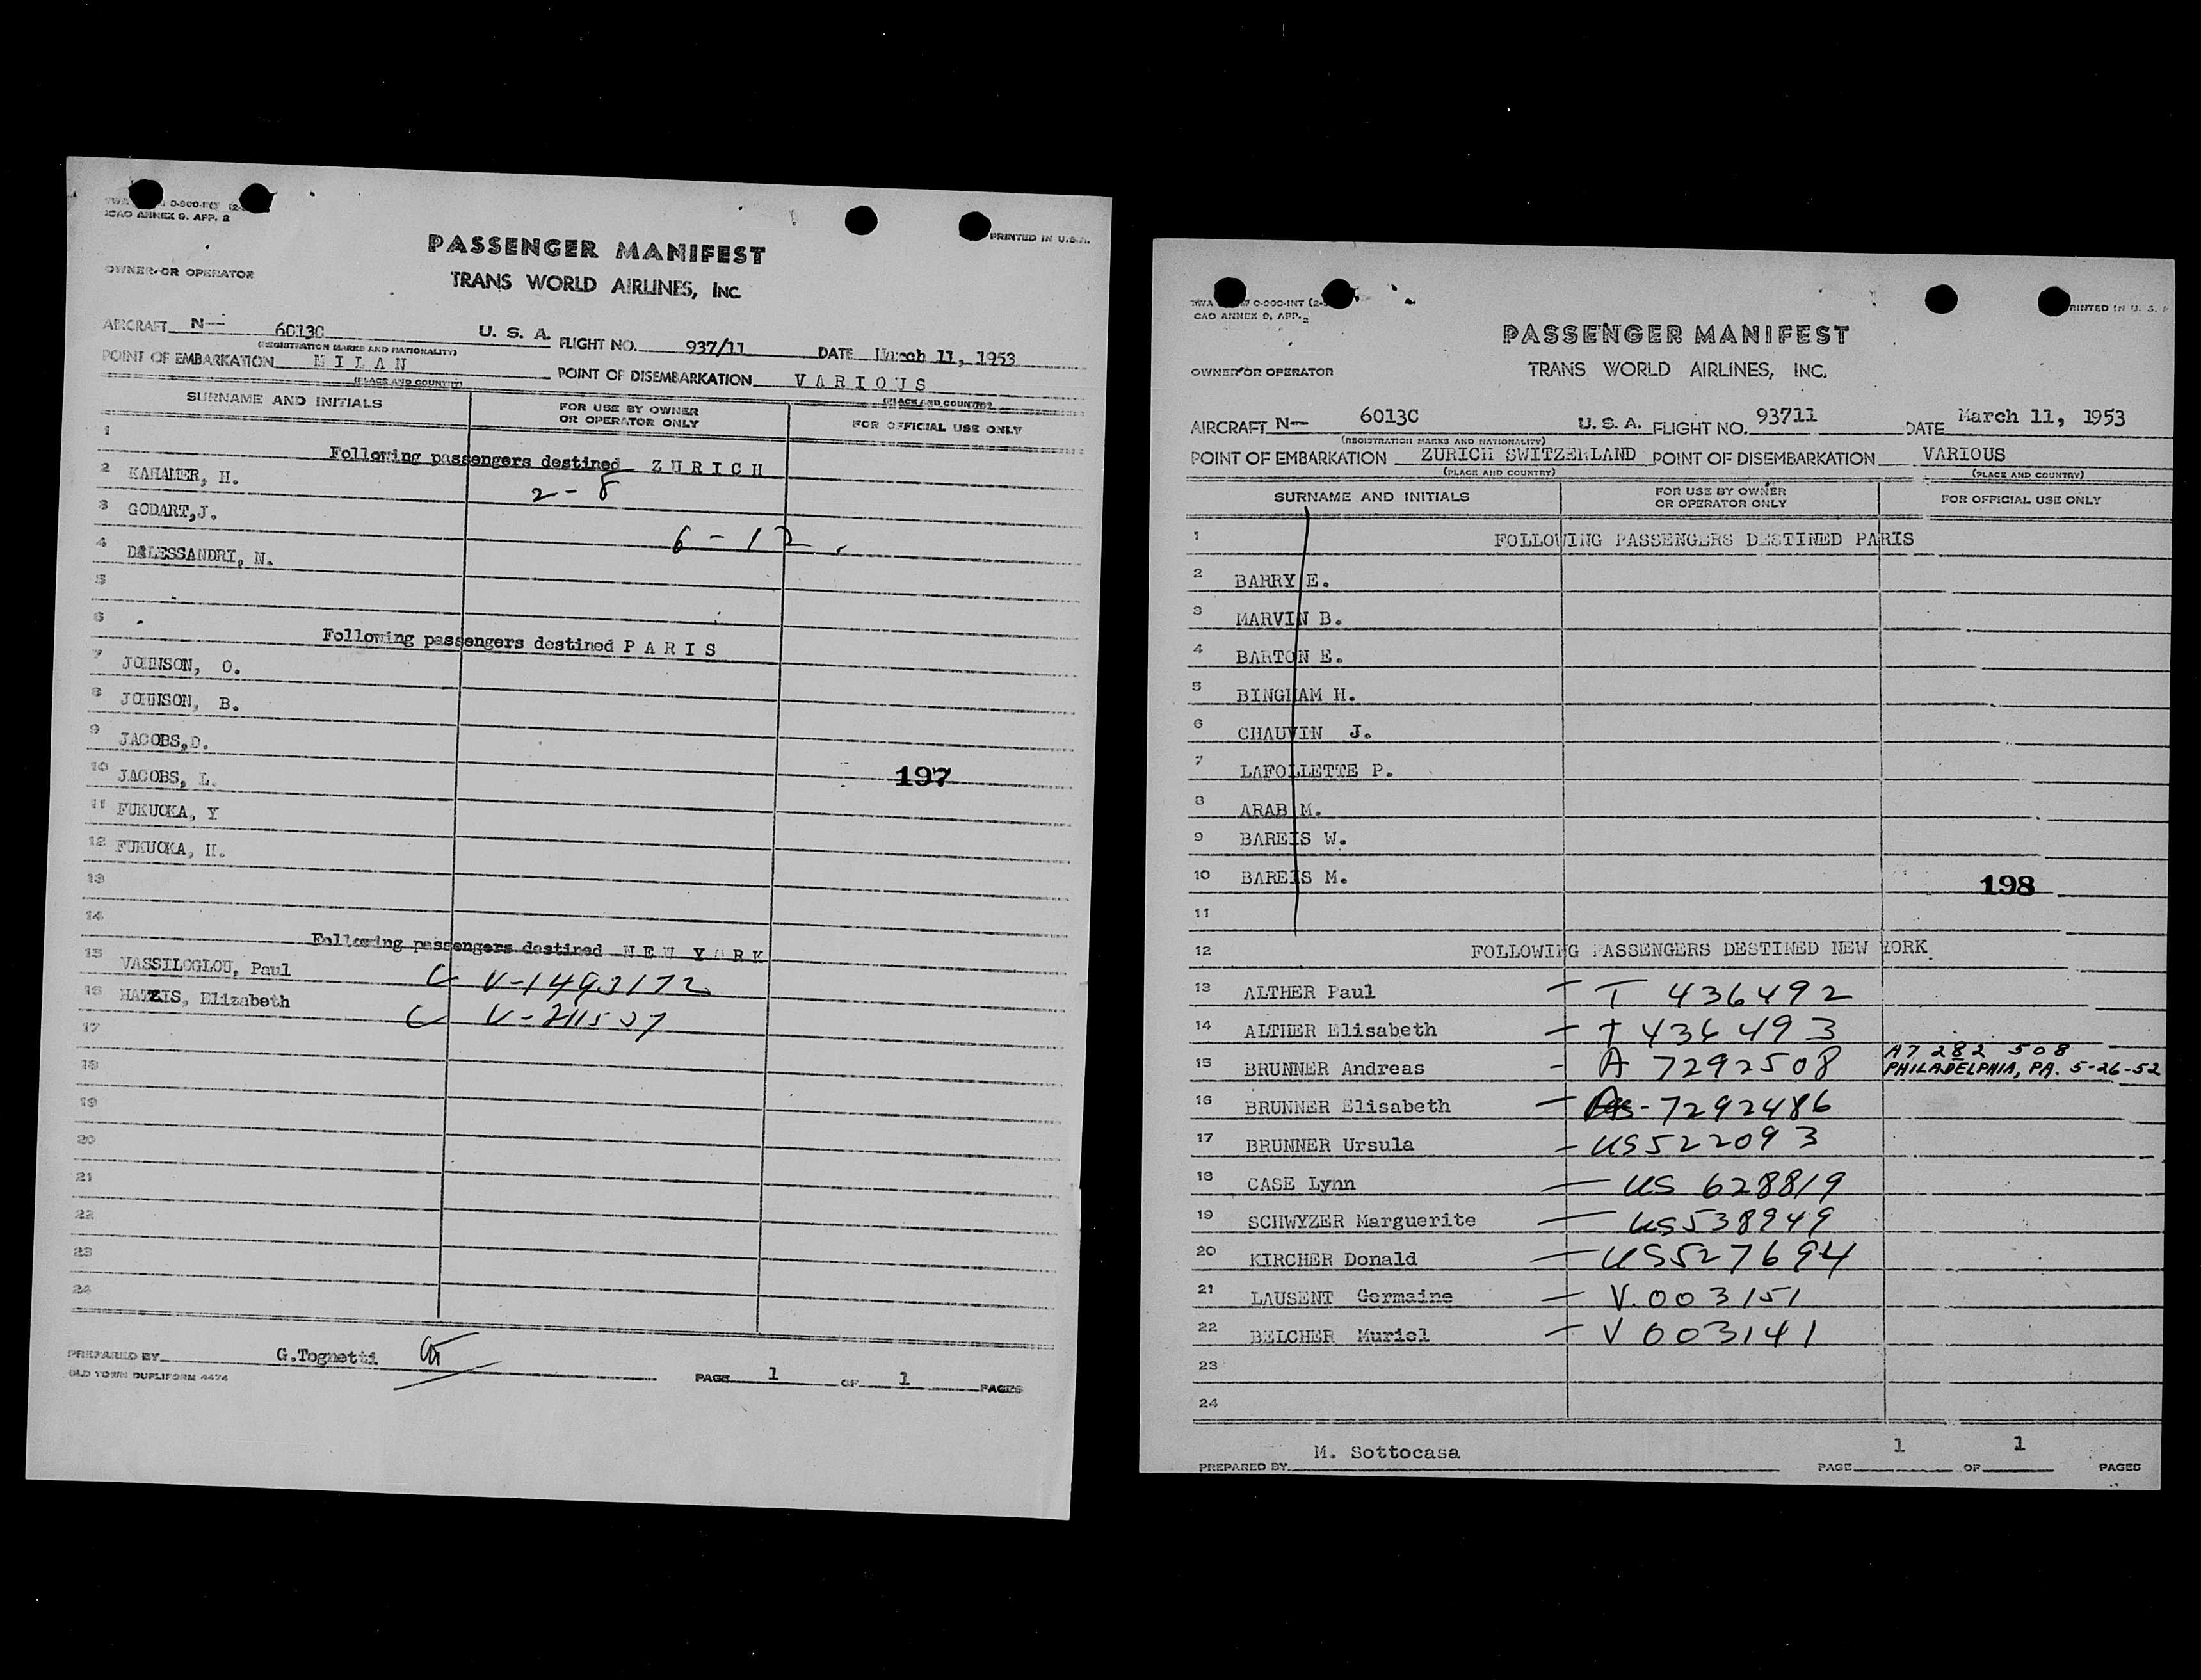 ICAO ANNEX 9, APP. 2
PRINTED IN U.S.A.
PASSENGER MANIFEST
OWNER OR OPERATOR
TRANS WORLD AIRLINES, INC.
AIRCRAFT N— 6013C U. S. A. FLIGHT NO. 937/11 DATE March 11, 1953
(REGISTRATION MARKS AND NATIONALITY)
POINT OF EMBARKATION M I L A N POINT OF DISEMBARKATION V A R I O U S
(PLACE AND COUNTRY) (PLACE AND COUNTRY)
SURNAME AND INITIALS FOR USE BY OWNER OR OPERATOR ONLY FOR OFFICIAL USE ONLY
1 Following passengers destined Z U R I C H
2 KAHAMER, H. 2-8
3 GODART,J. 6-12
4 DALESSANDRI, N.
5
6 Following passengers destined P A R I S
7 JOHNSON, C.
8 JOHNSON, B.
9 JACOBS,D.
10 JACOBS, L. 197
11 FUKUOKA, Y
12 FUKUOKA, H.
13
14 Following passengers destined N E W Y O R K
15 VASSILOGLOU, Paul V-1493172
16 HATZIS, Elizabeth V-211537
17
18
19
20
21
22
23
24
PREPARED BY G.Tognetti PAGE 1 OF 1 PAGES
OLD TOWN DUPLIFORM 4474
CAO ANNEX 9, APP. 2
PRINTED IN U. S. A
PASSENGER MANIFEST
OWNER OR OPERATOR
TRANS WORLD AIRLINES, INC.
AIRCRAFT N— 6013C U. S. A. FLIGHT NO. 93711 DATE March 11, 1953
(REGISTRATION MARKS AND NATIONALITY)
POINT OF EMBARKATION ZURICH SWITZERLAND POINT OF DISEMBARKATION VARIOUS
(PLACE AND COUNTRY) (PLACE AND COUNTRY)
SURNAME AND INITIALS FOR USE BY OWNER OR OPERATOR ONLY FOR OFFICIAL USE ONLY
1 FOLLOWING PASSENGERS DESTINED PARIS
2 BARRY E.
3 MARVIN B.
4 BARTON E.
5 BINGHAM H.
6 CHAUVIN J.
7 LAFOLLETTE P.
8 ARAB M.
9 BAREIS W.
10 BAREIS M. 198
11
12 FOLLOWING PASSENGERS DESTINED NEW YORK
13 ALTHER Paul — T 436492
14 ALTHER Elisabeth — T 436493
15 BRUNNER Andreas - A 7292508 A7 282 508 PHILADELPHIA, PA. 5-26-52
16 BRUNNER Elisabeth — -7292486
17 BRUNNER Ursula - US522093
18 CASE Lynn — US 628819
19 SCHWYZER Marguerite — US538949
20 KIRCHER Donald — US527694
21 LAUSENT Germaine — V.003151
22 BELCHER Muriel — V 003141
23
24
PREPARED BY M. Sottocasa PAGE 1 OF 1 PAGES